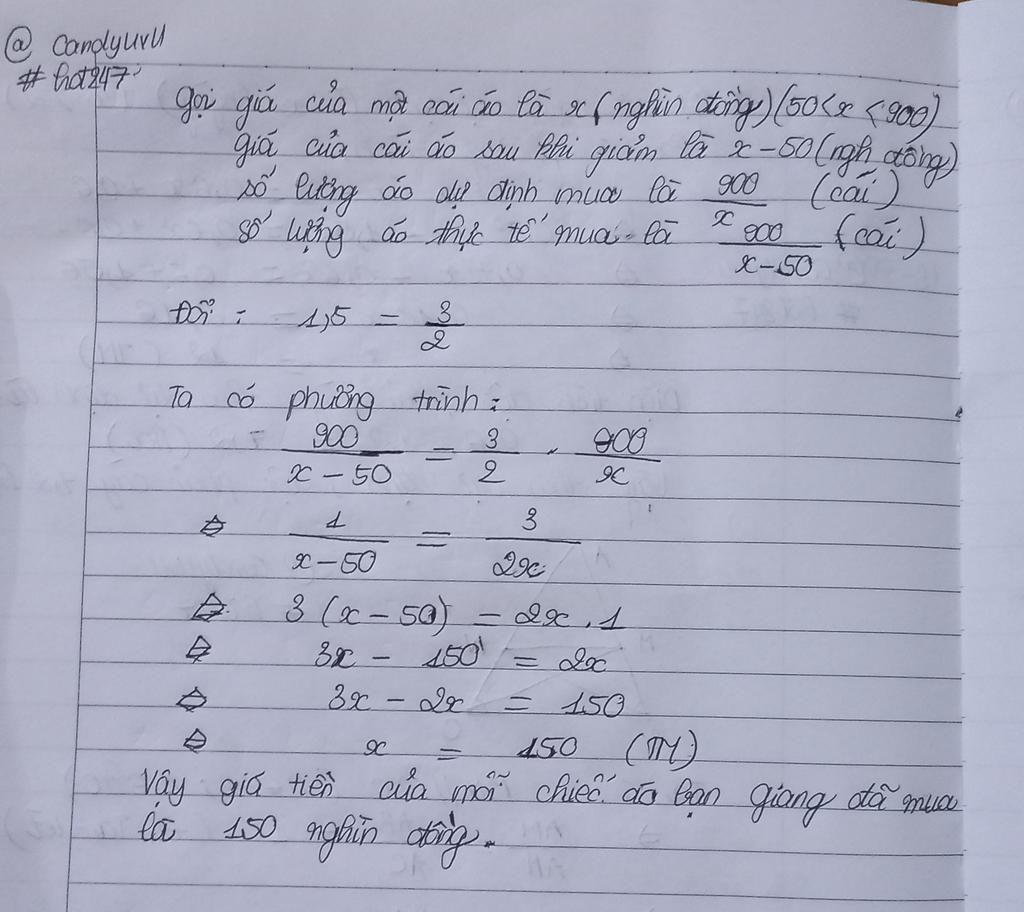 @ candyuvu
# hot247
gọi giá của một cái áo là x (nghìn đồng) (50 < x < 900)
giá của cái áo sau khi giảm là x - 50 (ngh đồng)
số lượng áo dự định mua là 900/x (cái)
số lượng áo thực tế mua là 900/(x-50) (cái)
Đổi : 1,5 = 3/2
Ta có phương trình :
900/(x - 50) = 3/2 . 900/x
⇔ 1/(x - 50) = 3/2x
⇔ 3 (x - 50) = 2x . 1
⇔ 3x - 150 = 2x
⇔ 3x - 2x = 150
⇔ x = 150 (TM)
Vậy giá tiền của mỗi chiếc áo bạn Giang đã mua
là 150 nghìn đồng.